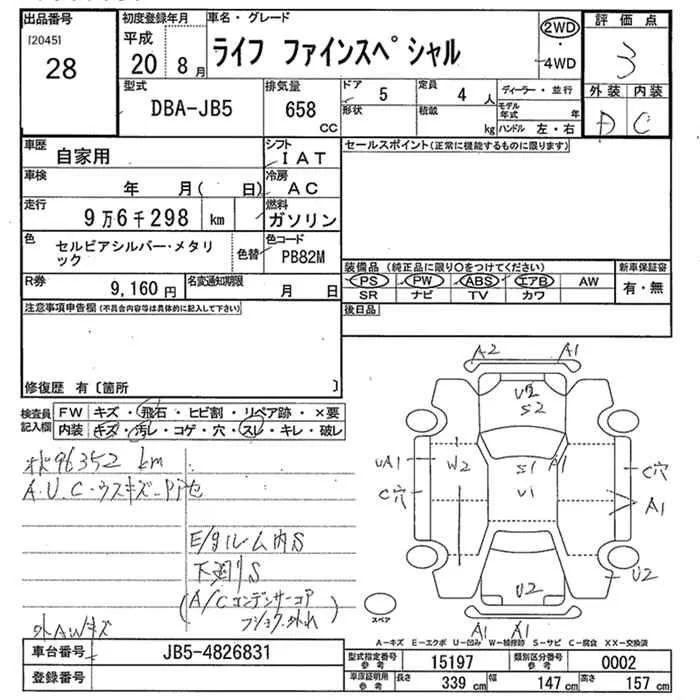 出品番号 初度登録年月 車名・グレード 2WD・4WD 評価点
[2045]
28 平成20年8月 ライフ ファインスペシャル 3
型式 排気量 ドア 定員 ディーラー・並行 外装 内装
DBA-JB5 658 CC 5 4人 モデル年式 年
形状 積載 kg ハンドル 左・右 C
車歴 シフト セールスポイント(正常に機能するものに限ります)
自家用 IAT
車検 冷房
年 月( 日) AC
走行 燃料
9万6千298 km ガソリン
色 色替 色コード
セルビアシルバー・メタリック PB82M
装備品 (純正品に限り○をつけてください) 新車保証書
PS PW ABS エアB AW 有・無
SR ナビ TV カワ
R券 名変通知期限
9,160円 月 日
後日品
注意事項申告欄(不具合内容等は具体的に記入して下さい)
修復歴 有〔箇所 〕
検査員記入欄 FW キズ・飛石・ヒビ割・リペア跡・×要
内装 キズ・汚レ・コゲ・穴・スレ・キレ・破レ
96352 km
A.U.C.ウスキズ
E/gルーム内S
下廻りS
(A/Cコンデンサーコア
フショク.外れ)
外AWキズ
A2 A1
U2
S2
UA1 W2 S1 A1 C穴
C穴 U1 A1
U2 U2
A1 A1
スペア
A-キズ E-エクボ U-凹み W-補修跡 S-サビ C-腐食 XX-交換済
車台番号 JB5-4826831
登録番号
型式指定番号参考 15197 類別区分番号参考 0002
車庫証明用参考 長さ 339 cm 幅 147 cm 高さ 157 cm